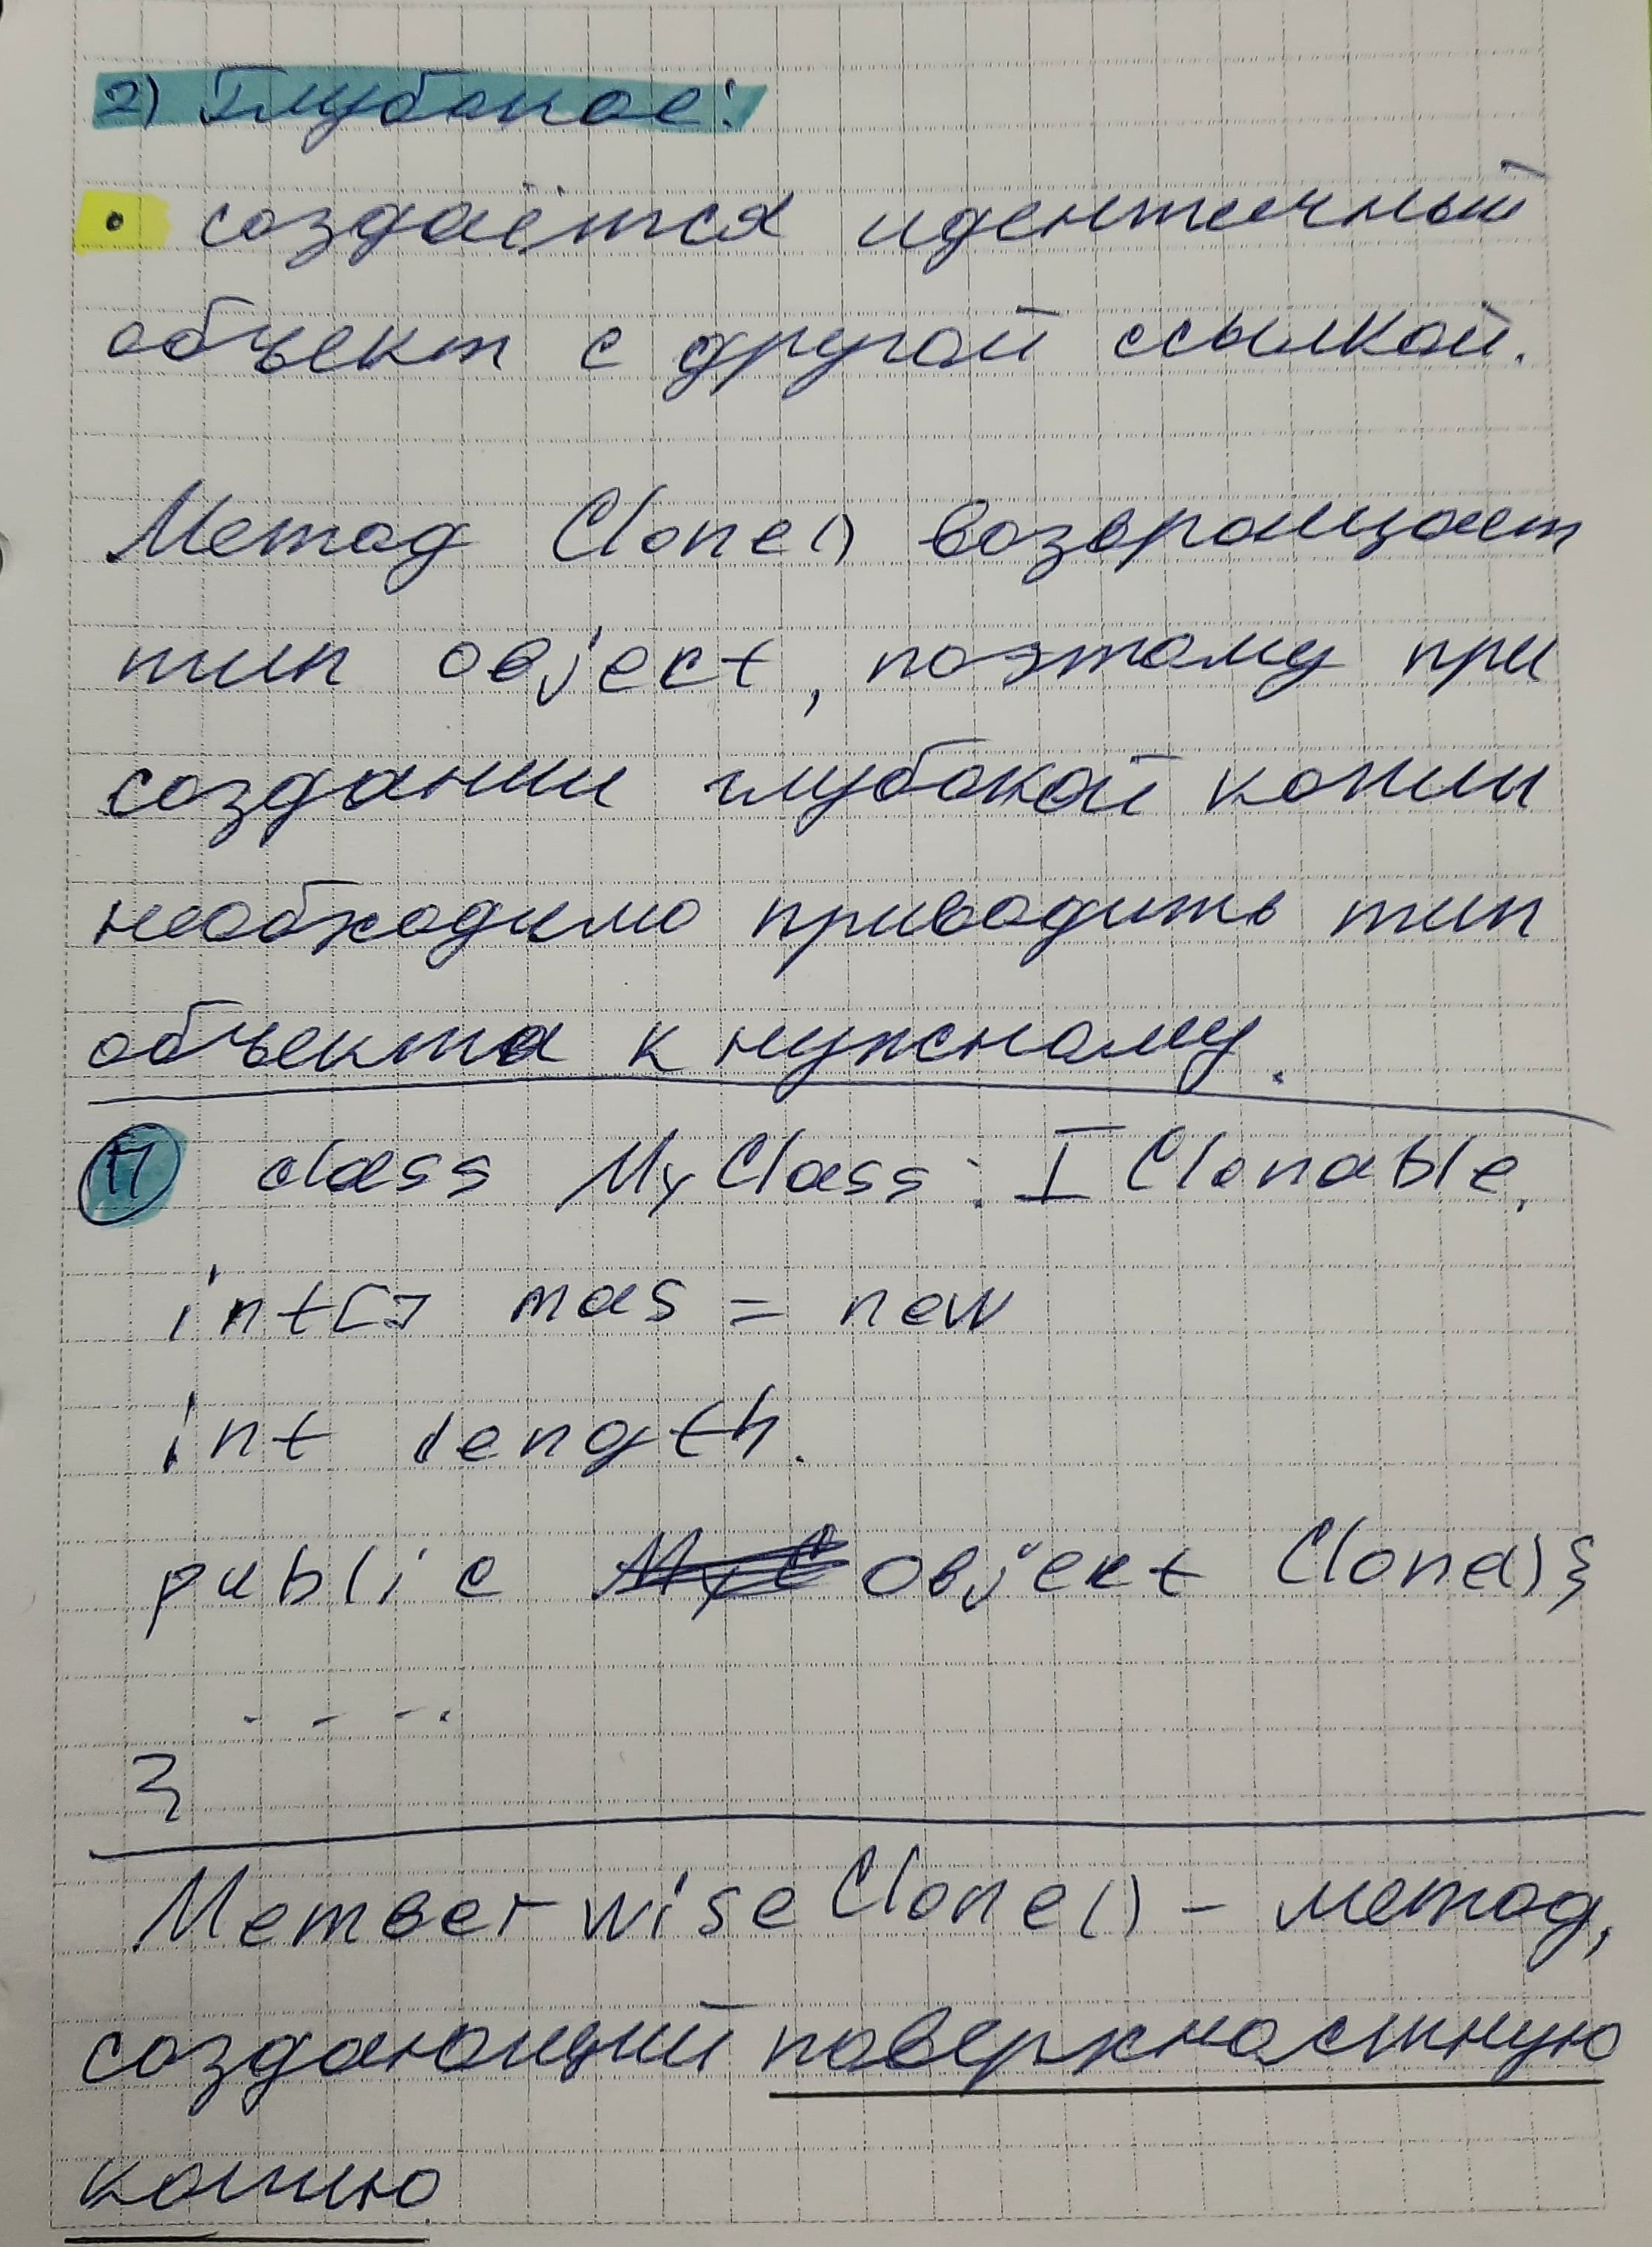 2) Глубокое:
• создаётся идентичный
объект с другой ссылкой.
Метод Clone() возвращает
тип object, поэтому при
создании глубокой копии
необходимо приводить тип
объекта к нужному.
П class MyClass: IClonable.
int[] mas = new
int length.
public object Clone(){
- - - -
}
MemberwiseClone() - метод,
создающий поверхностную
копию